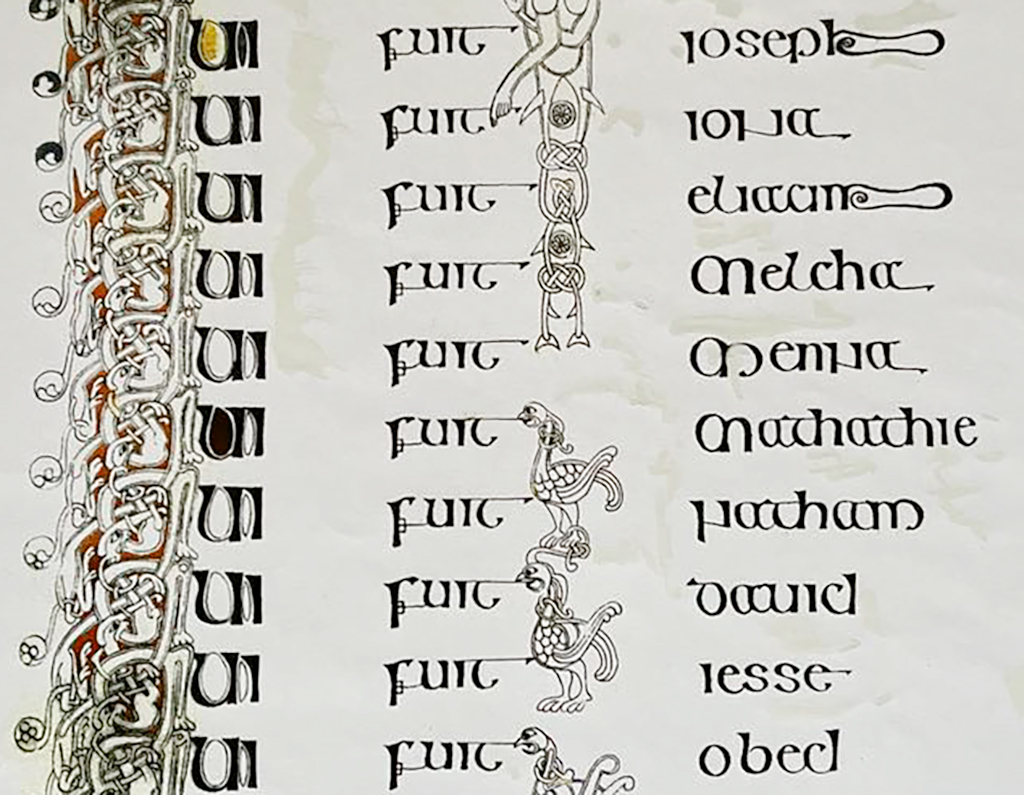 UI fuit ioseph
UI fuit iona
UI fuit eliacim
UI fuit melcha
UI fuit menna
UI fuit mathathie
UI fuit natham
UI fuit dauid
UI fuit iesse
UI fuit obed